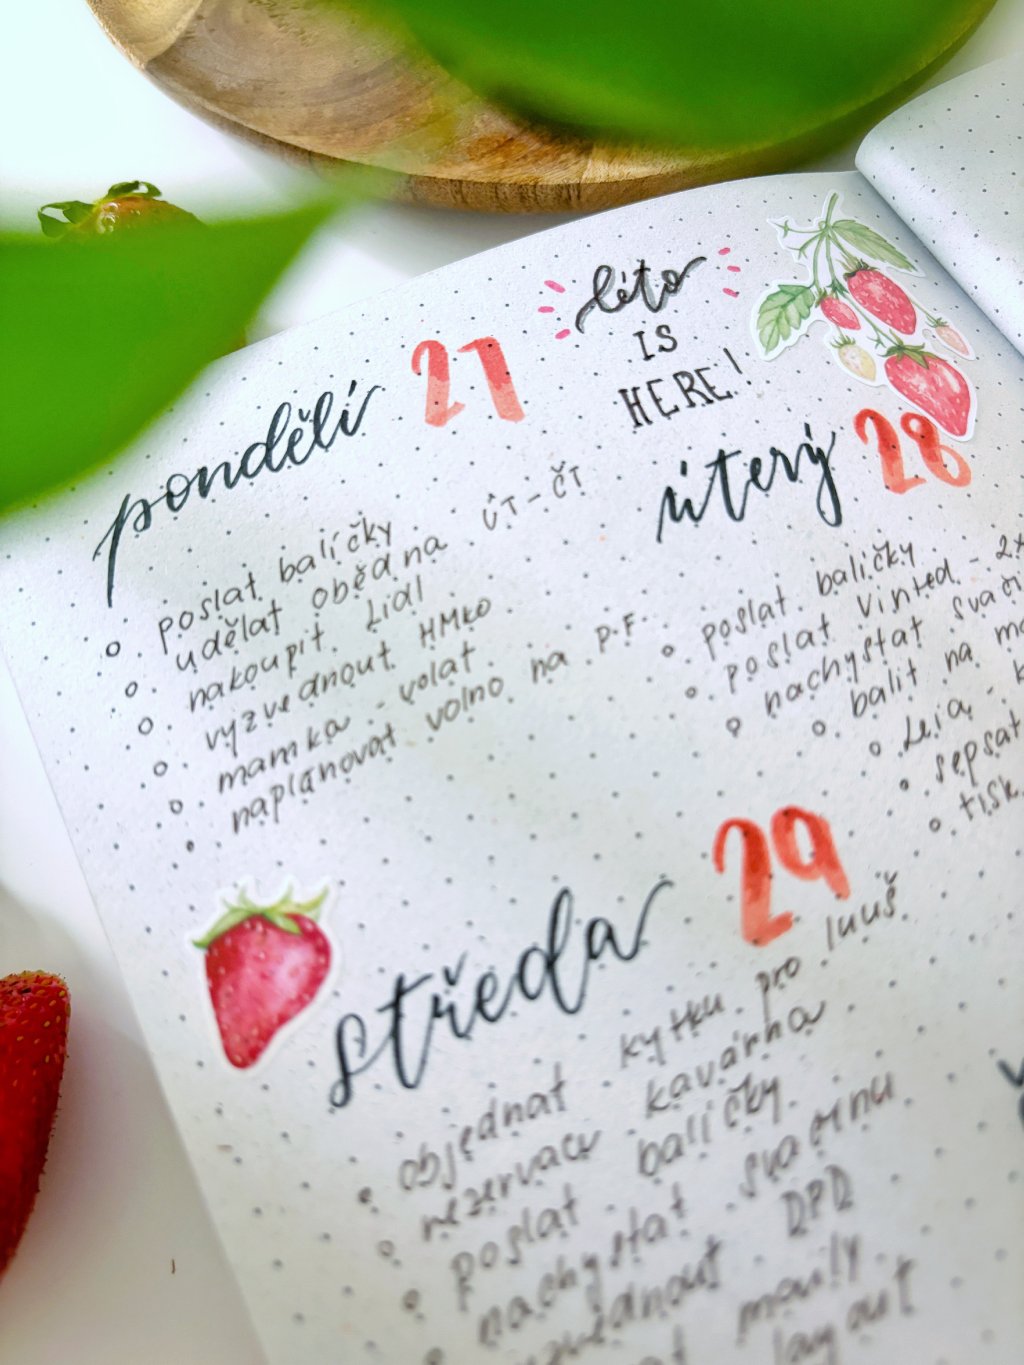 léto
IS
HERE!
pondělí 27
poslat balíčky
udělat oběd na ÚT - ČT
nakoupit Lidl
vyzvednout HMko
mamka - volat
naplánovat volno na P.F.
úterý 28
poslat balíčky
poslat vinted - 2x
nachystat
balit na
Leia -
sepsat
středa 29
objednat kytku pro
rezervace kavárna
poslat balíčky
nachystat svačinu
DPD
maily
layout